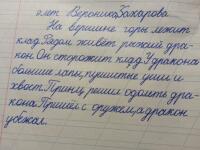 9 лет Вероника Захарова
На вершине горы лежит
клад. Рядом живёт рыжий дра-
кон. Он сторожит клад. У дракона
большие лапы, пушистые уши и
хвост. Принц решил одолеть дра-
кона. Пришёл с оружием, а дракон
убежал.